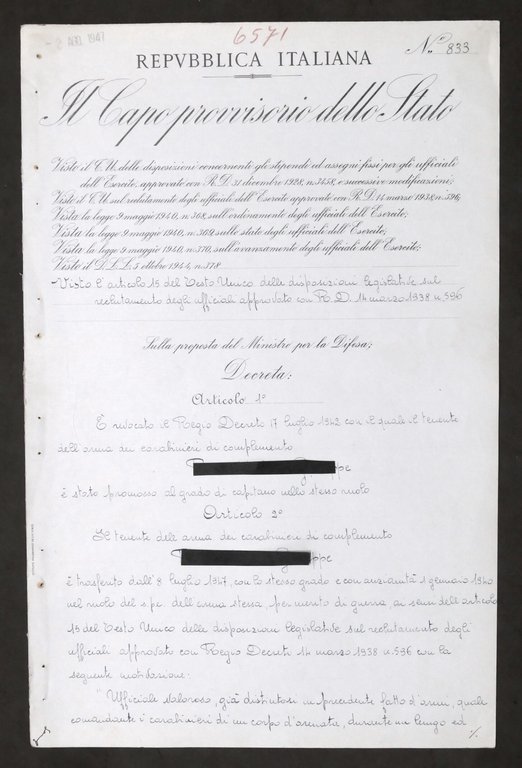 2 AGO 1947
6571
N.° 833
REPVBBLICA ITALIANA
Il Capo provvisorio dello Stato
Visto il T.U. delle disposizioni concernenti gli stipendi ed assegni fissi per gli ufficiali
dell'Esercito, approvato con R.D. 31 dicembre 1928, n. 3458, e successive modificazioni;
Visto il T.U. sul reclutamento degli ufficiali dell'Esercito approvato con R.D. 14 marzo 1938 n. 596;
Vista la legge 9 maggio 1940, n. 368, sull'ordinamento degli ufficiali dell'Esercito;
Vista la legge 9 maggio 1940, n. 369, sullo stato degli ufficiali dell'Esercito;
Vista la legge 9 maggio 1940, n. 370, sull'avanzamento degli ufficiali dell'Esercito;
Visto il D.L.L. 5 ottobre 1944, n. 378
Visto l'articolo 15 del Testo Unico delle disposizioni legislative sul
reclutamento degli ufficiali approvato con R.D. 14 marzo 1938 n. 596
Sulla proposta del Ministro per la Difesa;
Decreta:
Articolo 1°
È revocato il Regio Decreto 17 luglio 1942 con il quale il tenente
dell'arma dei carabinieri di complemento
è stato promosso al grado di capitano nello stesso ruolo
Articolo 2°
Il tenente dell'arma dei carabinieri di complemento
è trasferito dall'8 luglio 1947, con lo stesso grado e con anzianità 1 gennaio 1940
nel ruolo del s.p.e. dell'arma stessa, per merito di guerra, ai sensi dell'articolo
15 del Testo Unico delle disposizioni legislative sul reclutamento degli
ufficiali approvato con Regio Decreto 14 marzo 1938 n. 596 con la
seguente motivazione:
"Ufficiale valoroso, già distintosi in precedente fatto d'armi, quale
comandante i carabinieri di un corpo d'armata, durante un lungo ed